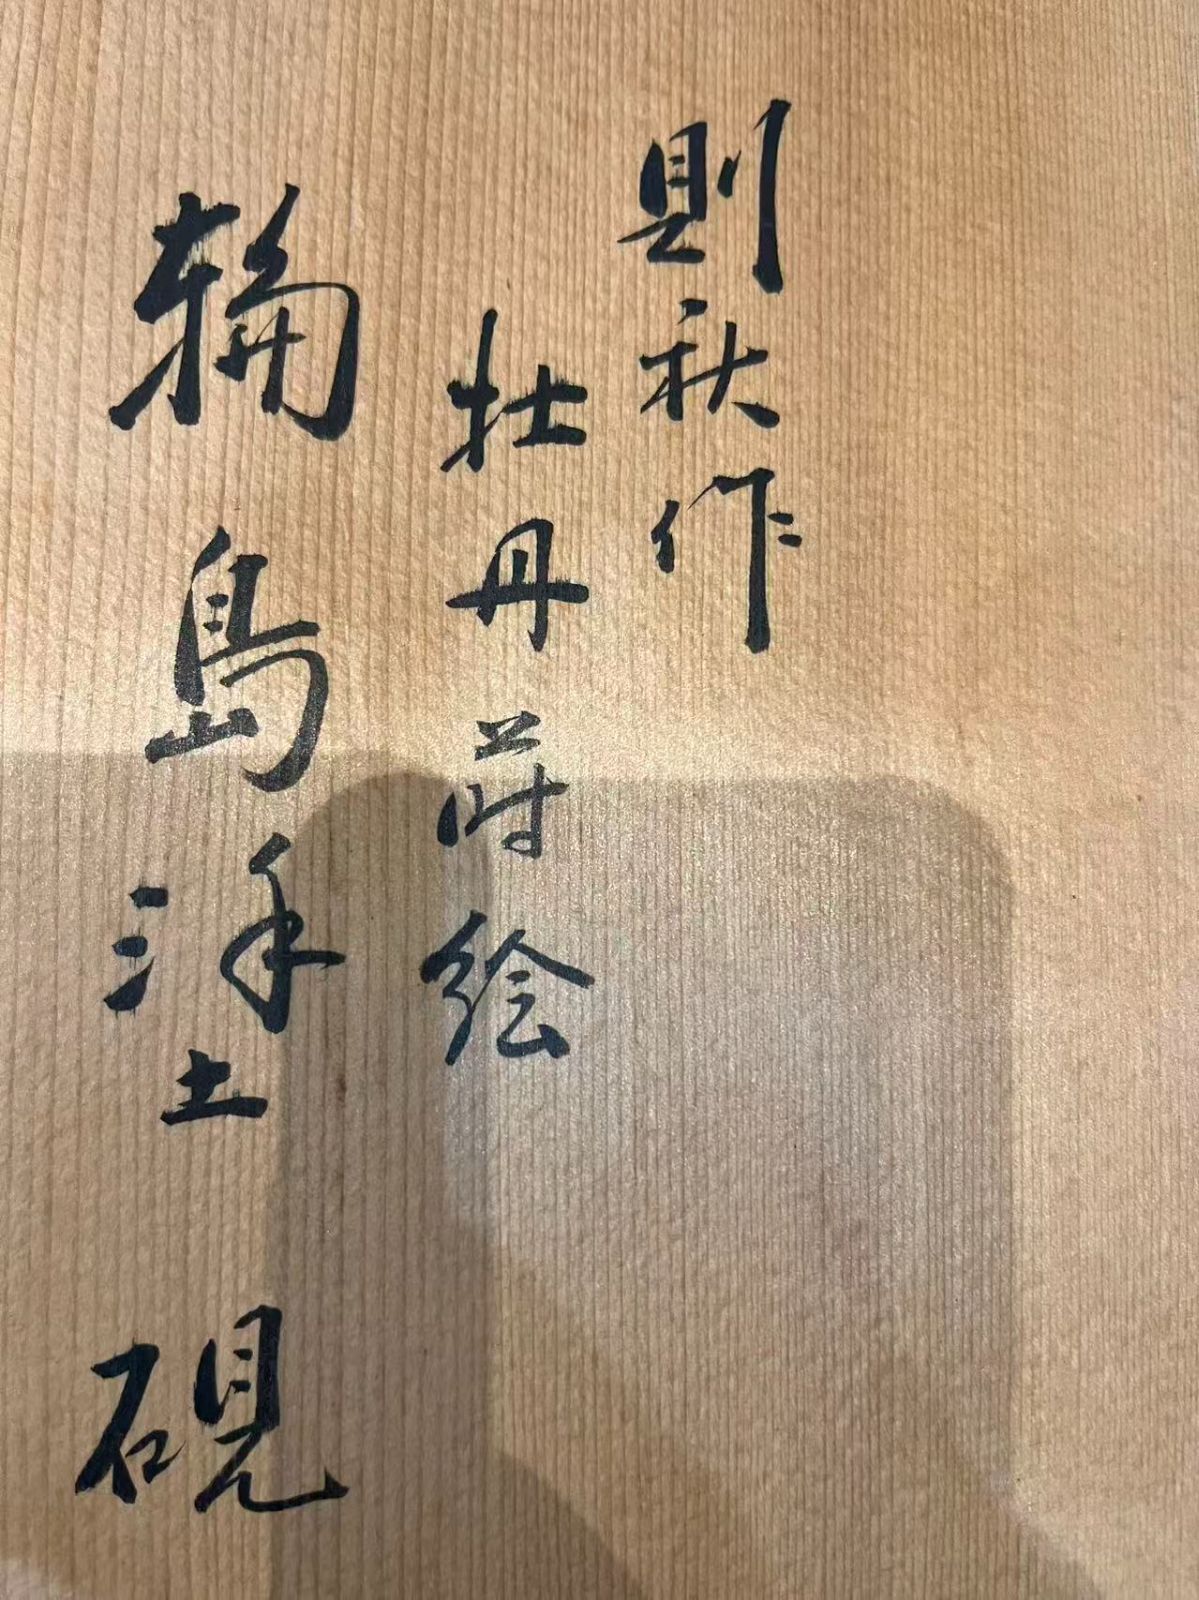 則秋作
牡丹蒔絵
輪島塗 硯